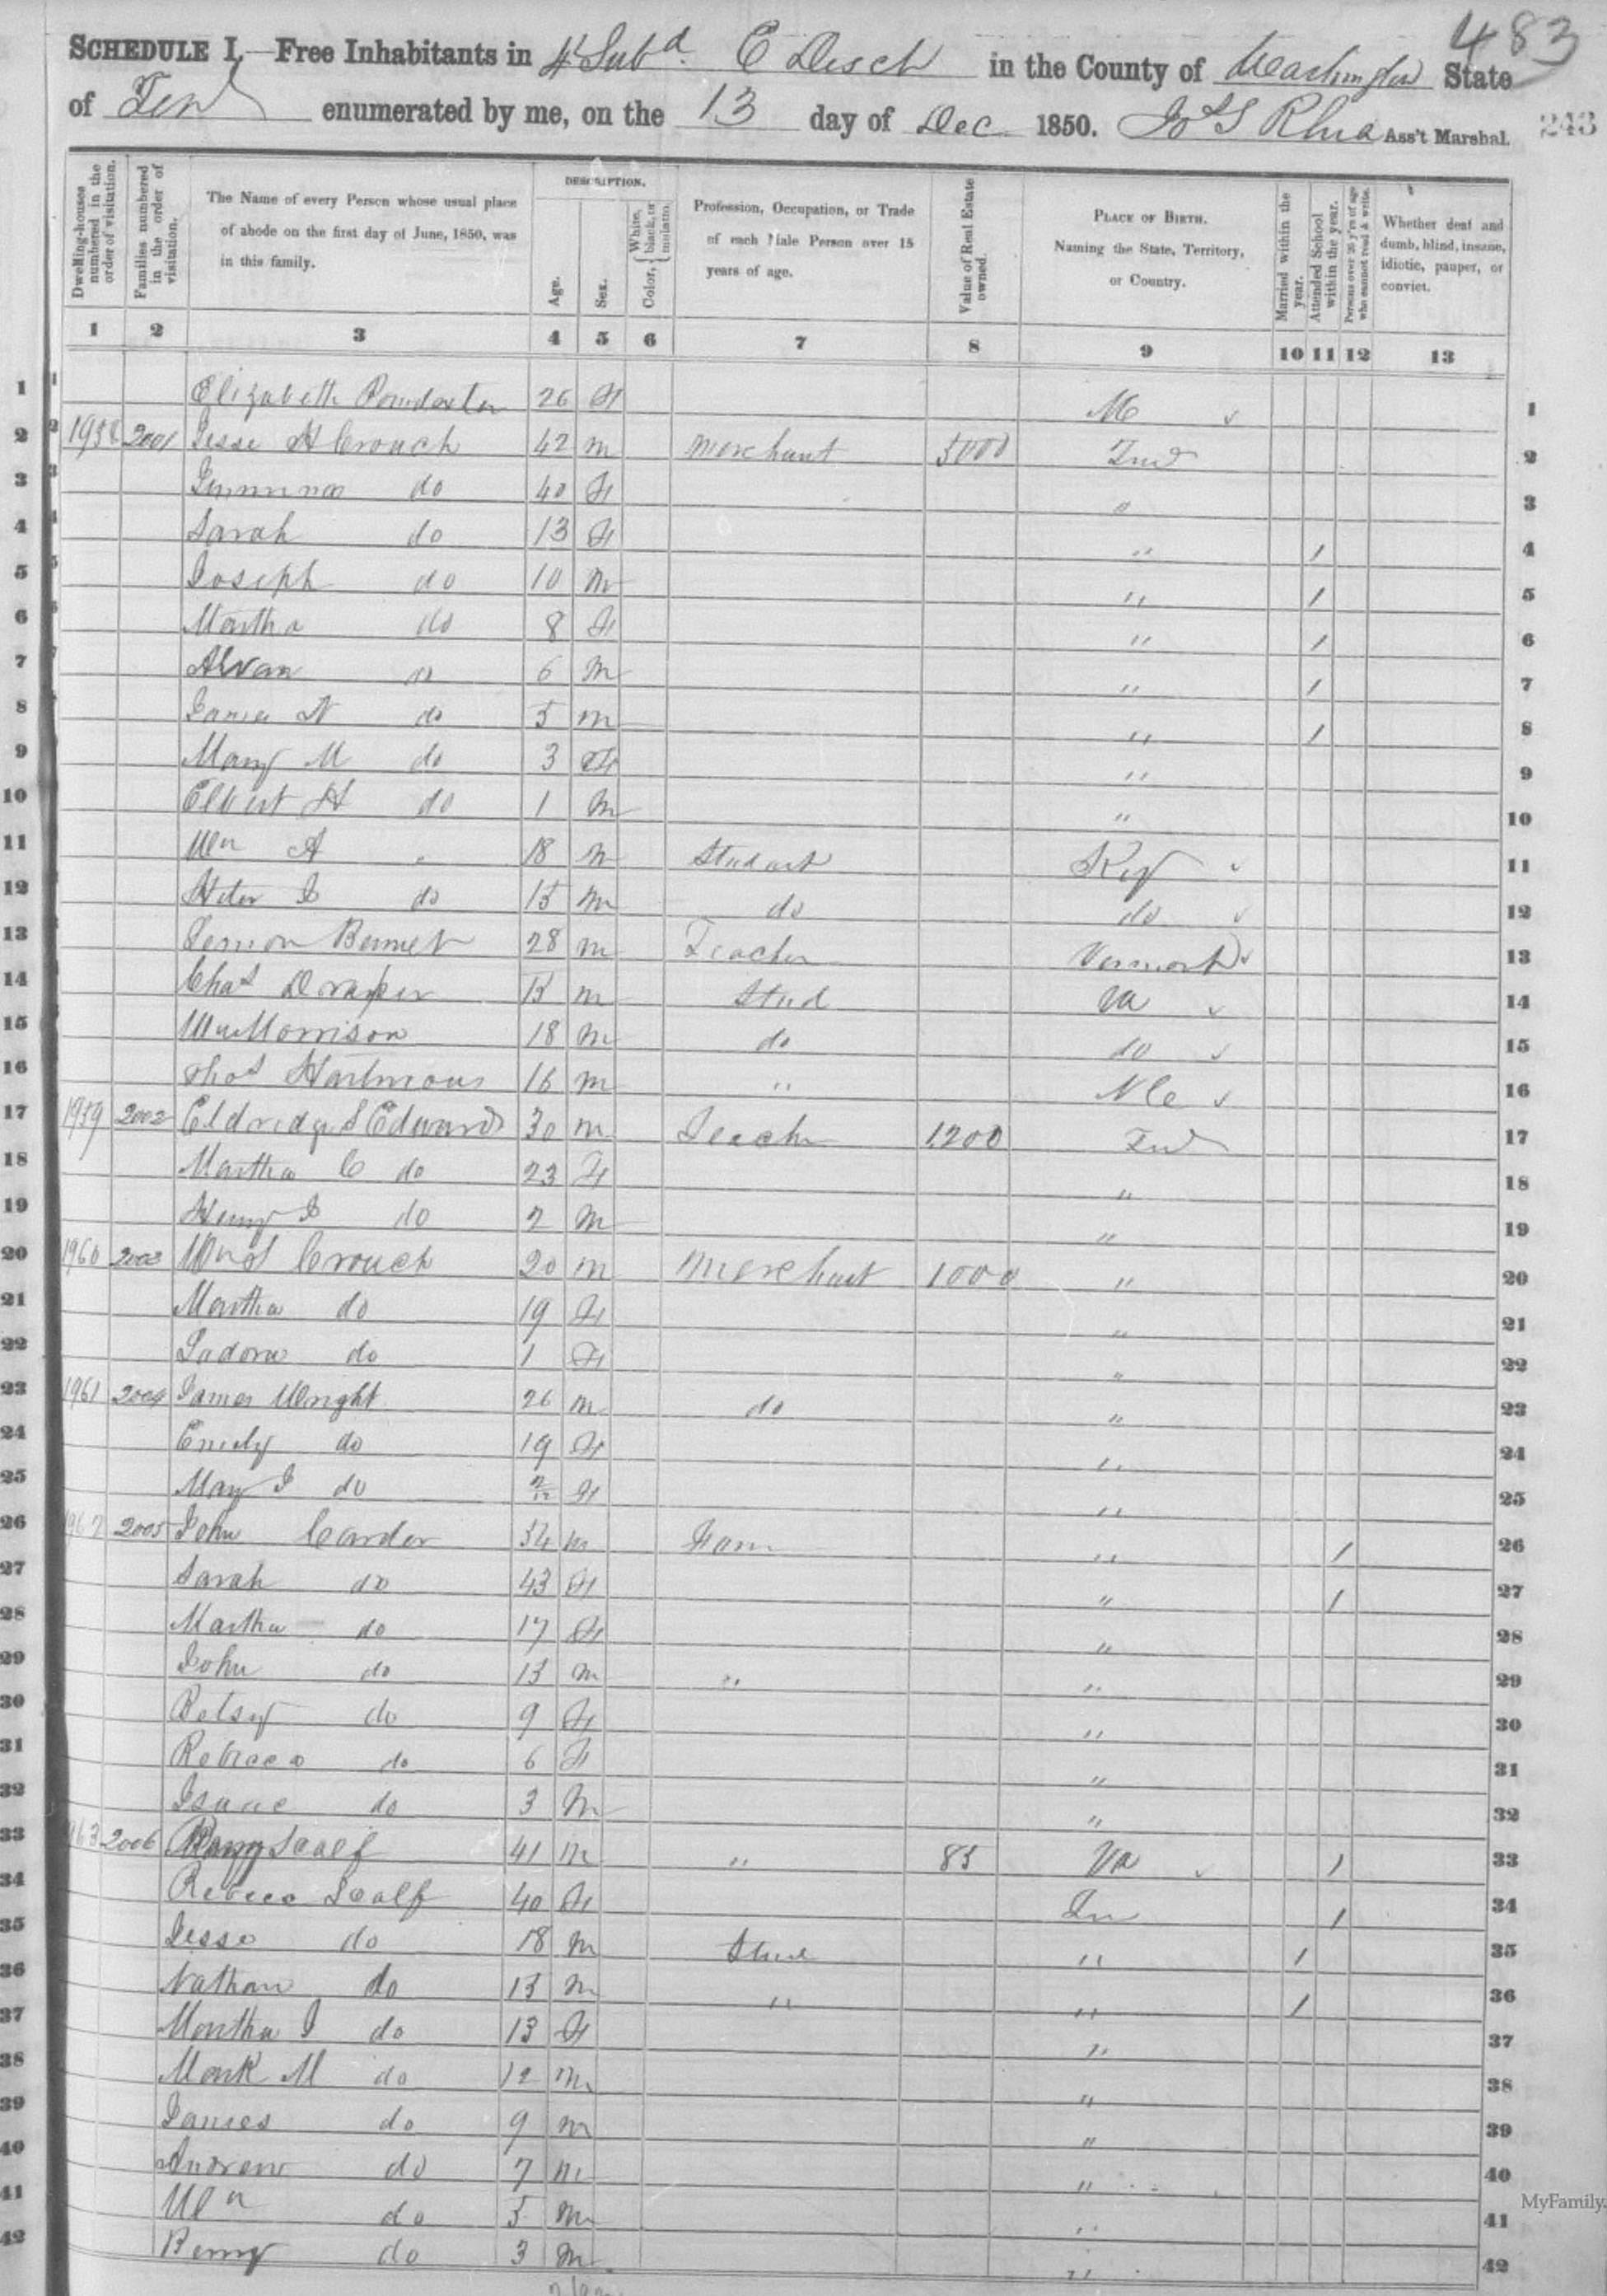 483
SCHEDULE I.—Free Inhabitants in 4 Subd. E Desct in the County of Washington State
of Ten enumerated by me, on the 13 day of Dec 1850. Jos S Rhea Ass't Marshal. 243
Dwelling-houses numbered in the order of visitation. Families numbered in the order of visitation. The Name of every Person whose usual place of abode on the first day of June, 1850, was in this family. DESCRIPTION. Age. Sex. Color, { White, black, or mulatto. Profession, Occupation, or Trade of each Male Person over 15 years of age. Value of Real Estate owned. PLACE OF BIRTH. Naming the State, Territory, or Country. Married within the year. Attended School within the year. Persons over 20 y'rs of age who cannot read & write. Whether deaf and dumb, blind, insane, idiotic, pauper, or convict.
1 2 3 4 5 6 7 8 9 10 11 12 13
1 Elizabeth 26 F 1
2 1958 2001 Jesse H Crouch 42 m merchant 5000 2
3 do 40 F " 3
4 Sarah do 13 F " / 4
5 Joseph do 10 m " / 5
6 Martha do 8 F " / 6
7 Alvan do 6 m " / 7
8 James N do 5 m " / 8
9 Mary M do 3 F " 9
10 Elbert H do 1 m " 10
11 Wm A " 18 m Student Ky 11
12 do 15 m do do 12
13 Bennet 28 m Teacher Vermont 13
14 Chas Draper 15 m Stud Va 14
15 Wm Morrison 18 m do do 15
16 Thos 16 m " NC 16
17 1959 2002 Eldridge S Edwards 30 m Teacher 1200 17
18 Martha C do 23 F " 18
19 Henry J do 2 m " 19
20 1960 2003 Crouch 20 m Merchant 1000 " 20
21 Martha do 19 F " 21
22 do 1 F " 22
23 1961 2004 James Wright 26 m do " 23
24 Emily do 19 F " 24
25 Mary J do F " 25
26 1962 2005 John Carder m Farm " / 26
27 Sarah do 43 F " / 27
28 Martha do 17 F " 28
29 John do 15 m " " 29
30 Betsy do 9 F " 30
31 Rebecca do 6 F " 31
32 Isaac do 3 m " 32
33 2006 Scalf 41 m " 85 Va / 33
34 Rebecc Scalf 40 F Ten / 34
35 Jesse do 18 m Stud " / 35
36 Nathan do 15 m " " / 36
37 Martha J do 13 F " 37
38 Mark M do 12 m " 38
39 James do 9 m " 39
40 Andrew do 7 m " 40
41 Wm do 5 m " 41
42 Berry do 3 m " 42
MyFamily.